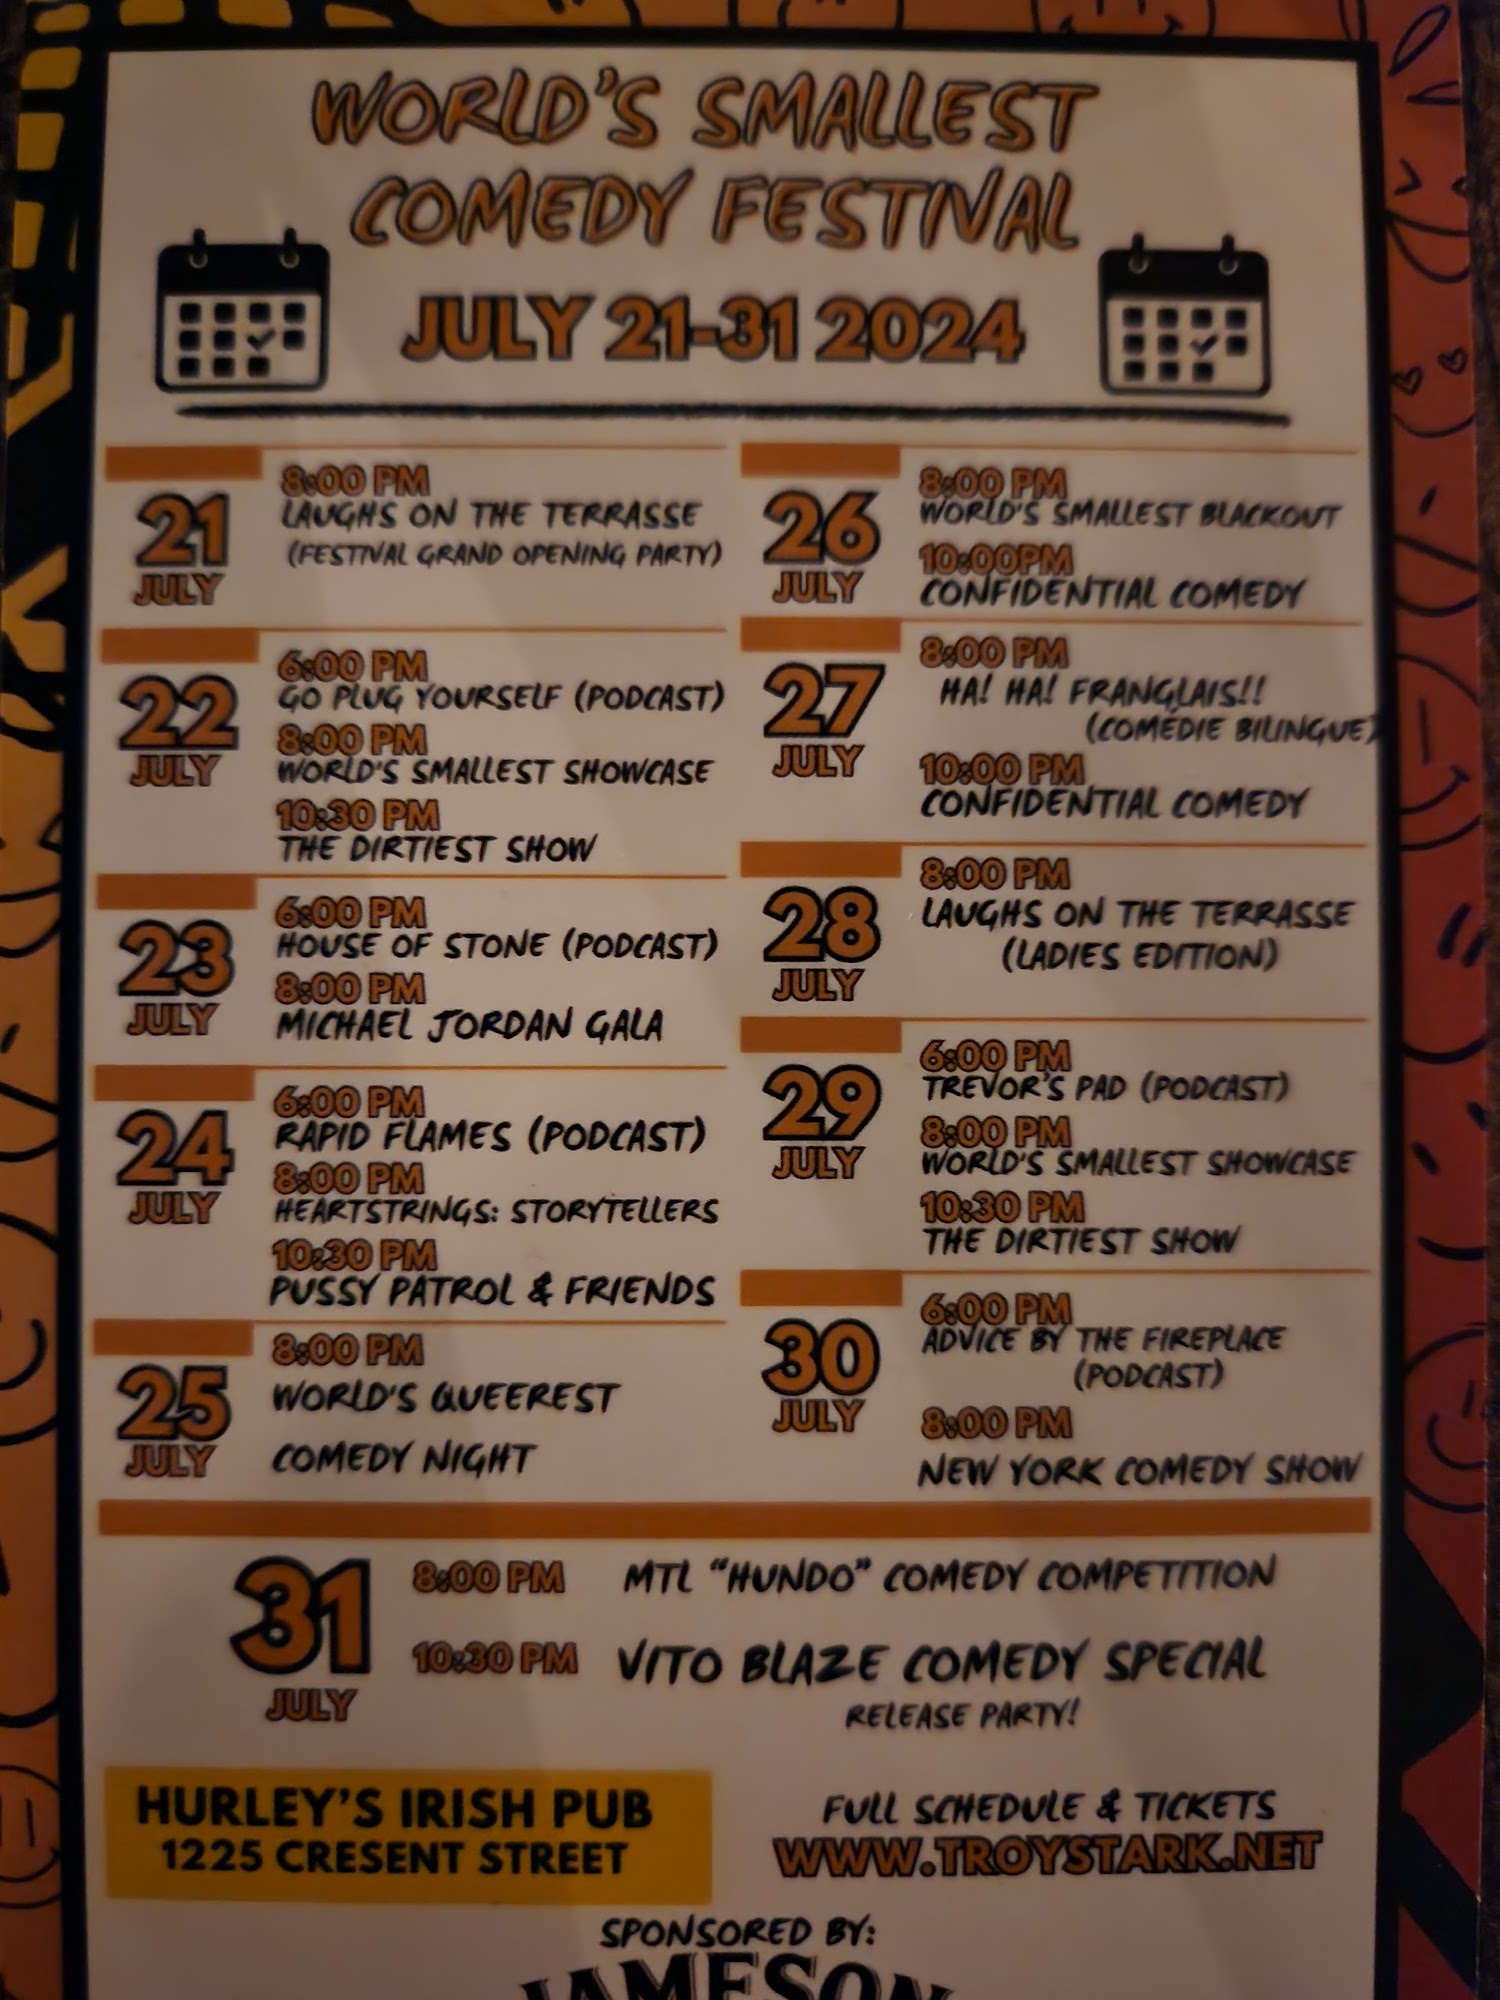 WORLD'S SMALLEST
COMEDY FESTIVAL
JULY 21-31 2024
21
JULY
8:00 PM
LAUGHS ON THE TERRASSE
(FESTIVAL GRAND OPENING PARTY)
22
JULY
6:00 PM
GO PLUG YOURSELF (PODCAST)
8:00 PM
WORLD'S SMALLEST SHOWCASE
10:30 PM
THE DIRTIEST SHOW
23
JULY
6:00 PM
HOUSE OF STONE (PODCAST)
8:00 PM
MICHAEL JORDAN GALA
24
JULY
6:00 PM
RAPID FLAMES (PODCAST)
8:00 PM
HEARTSTRINGS: STORYTELLERS
10:30 PM
PUSSY PATROL & FRIENDS
25
JULY
8:00 PM
WORLD'S QUEEREST
COMEDY NIGHT
26
JULY
8:00 PM
WORLD'S SMALLEST BLACKOUT
10:00PM
CONFIDENTIAL COMEDY
27
JULY
8:00 PM
HA! HA! FRANGLAIS!!
(COMÉDIE BILINGUE)
10:00 PM
CONFIDENTIAL COMEDY
28
JULY
8:00 PM
LAUGHS ON THE TERRASSE
(LADIES EDITION)
29
JULY
6:00 PM
TREVOR'S PAD (PODCAST)
8:00 PM
WORLD'S SMALLEST SHOWCASE
10:30 PM
THE DIRTIEST SHOW
30
JULY
6:00 PM
ADVICE BY THE FIREPLACE
(PODCAST)
8:00 PM
NEW YORK COMEDY SHOW
31
JULY
8:00 PM MTL "HUNDO" COMEDY COMPETITION
10:30 PM VITO BLAZE COMEDY SPECIAL
RELEASE PARTY!
HURLEY'S IRISH PUB
1225 CRESENT STREET
FULL SCHEDULE & TICKETS
WWW.TROYSTARK.NET
SPONSORED BY:
JAMESON